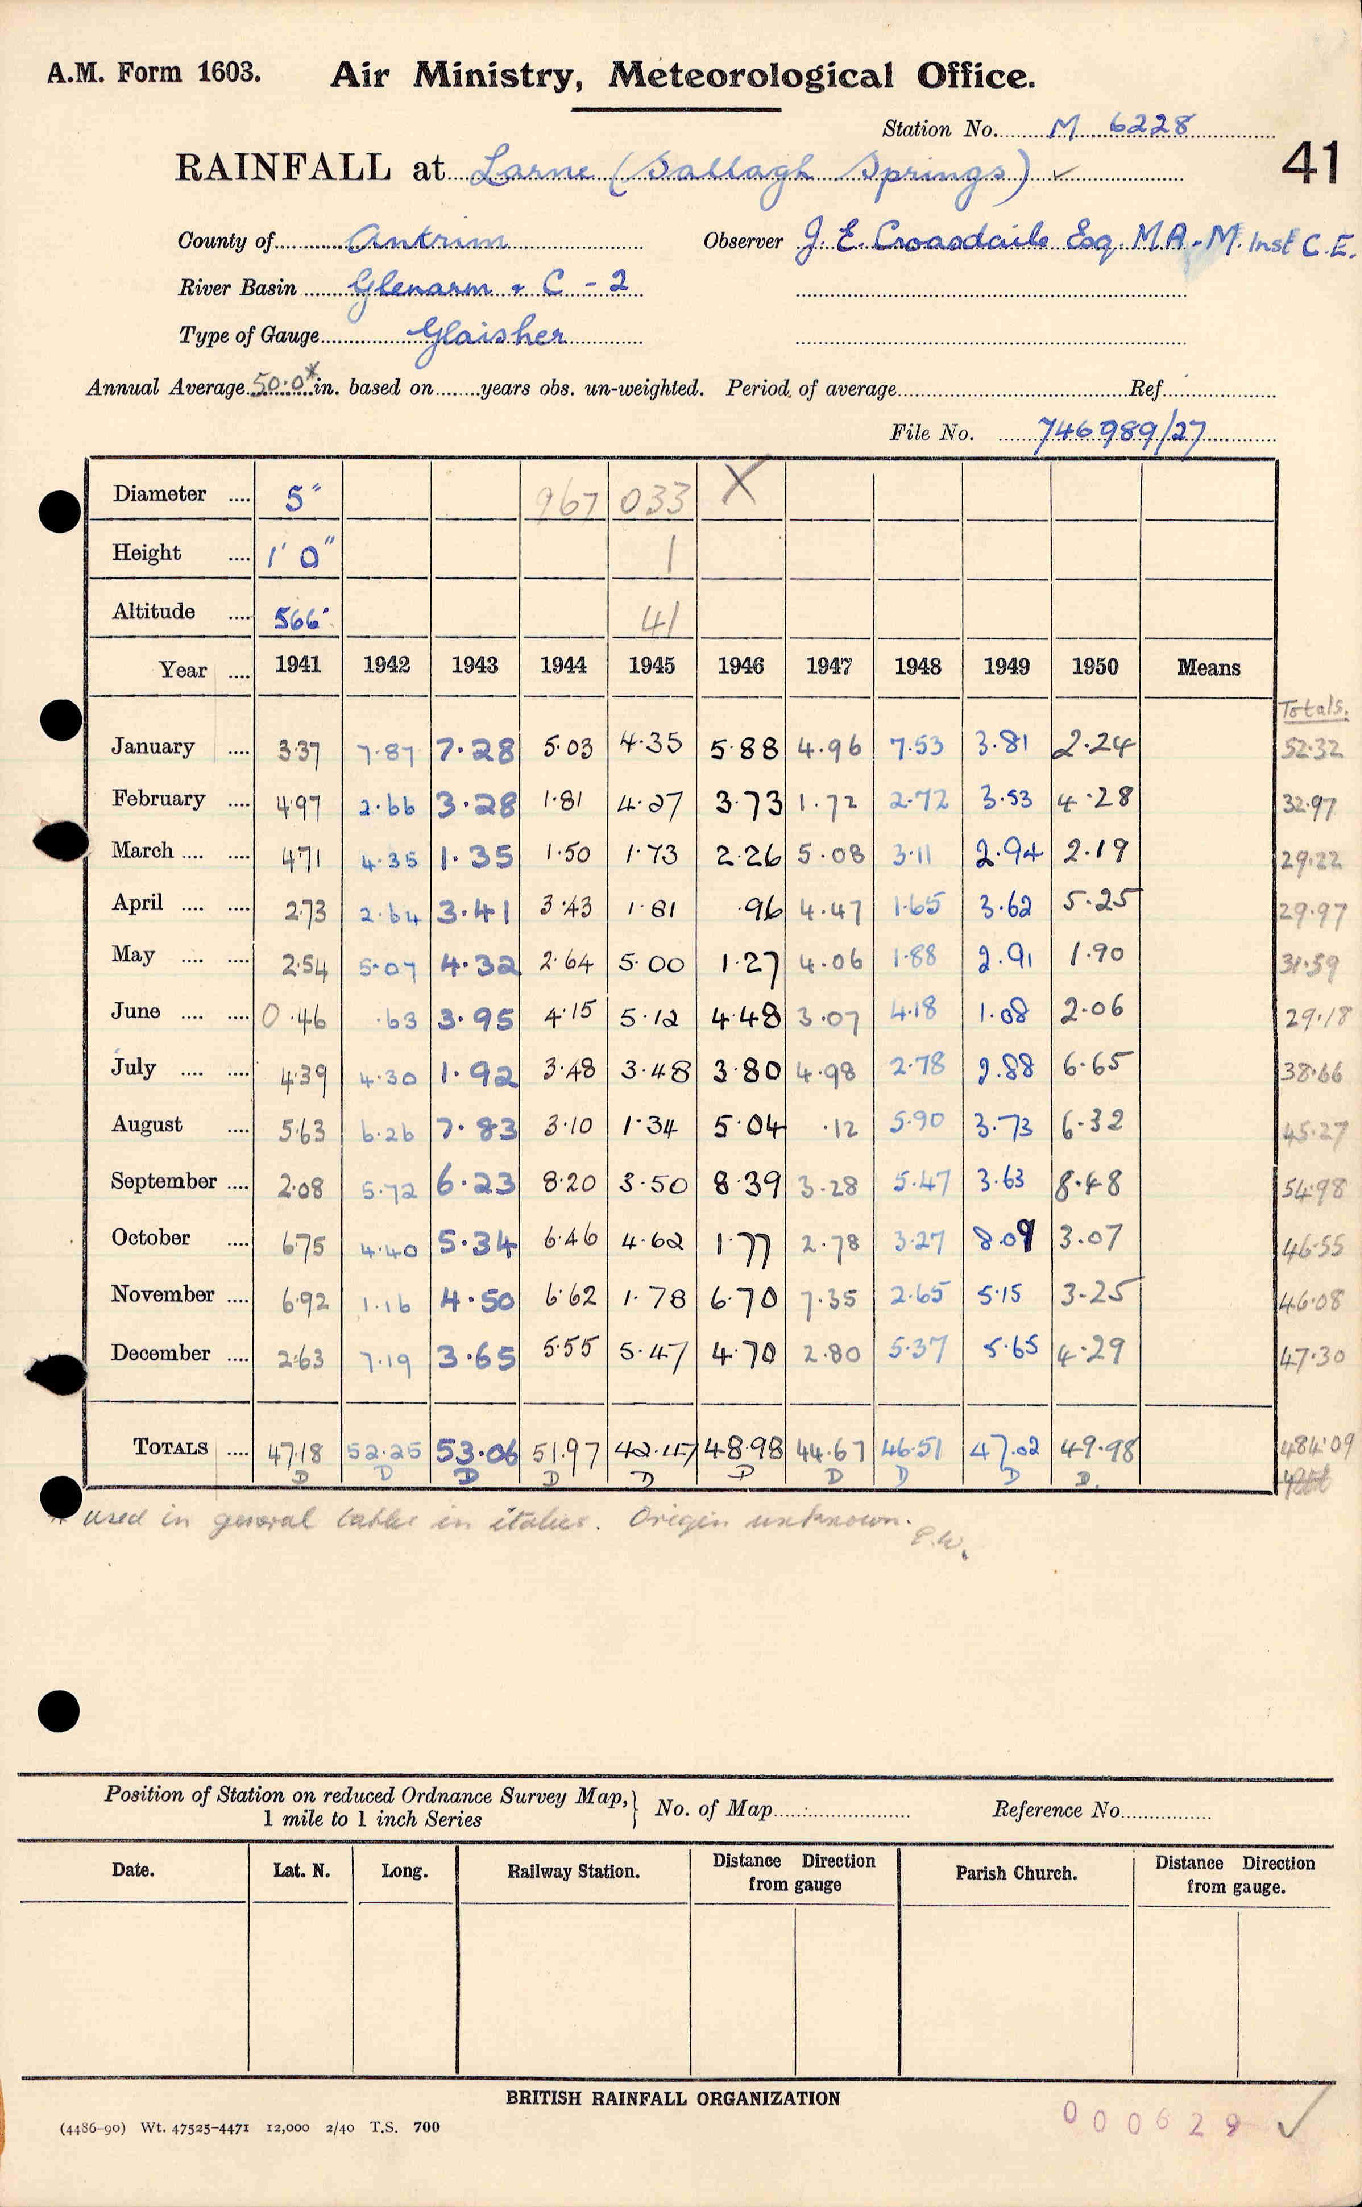 A.M. Form 1603. Air Ministry, Meteorological Office.
Station No. M 6228
RAINFALL at Larne (Sallagh Springs) ✓ 41
County of Antrim Observer J. E. Croasdaile Esq. M.A. M. Inst C.E.
River Basin Glenarm + C - 2
Type of Gauge Glaisher
Annual Average 50.0* in. based on years obs. un-weighted. Period of average Ref.
File No. 746989/27
Diameter .... 5" 967 033 X
Height .... 1' 0" 1
Altitude .... 566' 41
Year .... 1941 1942 1943 1944 1945 1946 1947 1948 1949 1950 Means
Totals.
January .... 3.37 7.87 7.28 5.03 4.35 5.88 4.96 7.53 3.81 2.24 52.32
February .... 4.97 2.66 3.28 1.81 4.27 3.73 1.72 2.72 3.53 4.28 32.97
March .... .... 4.71 4.35 1.35 1.50 1.73 2.26 5.08 3.11 2.94 2.19 29.22
April .... .... 2.73 2.64 3.41 3.43 1.81 .96 4.47 1.65 3.62 5.25 29.97
May .... .... 2.54 5.07 4.32 2.64 5.00 1.27 4.06 1.88 2.91 1.90 31.59
June .... .... 0.46 .63 3.95 4.15 5.12 4.48 3.07 4.18 1.08 2.06 29.18
July .... .... 4.39 4.30 1.92 3.48 3.48 3.80 4.98 2.78 2.88 6.65 38.66
August .... 5.63 6.26 7.83 3.10 1.34 5.04 .12 5.90 3.73 6.32 45.27
September .... 2.08 5.72 6.23 8.20 3.50 8.39 3.28 5.47 3.63 8.48 54.98
October .... 6.75 4.40 5.34 6.46 4.62 1.77 2.78 3.27 8.09 3.07 46.55
November .... 6.92 1.16 4.50 6.62 1.78 6.70 7.35 2.65 5.15 3.25 46.08
December .... 2.63 7.19 3.65 5.55 5.47 4.70 2.80 5.37 5.65 4.29 47.30
TOTALS .... 47.18 52.25 53.06 51.97 42.47 48.98 44.67 46.51 47.02 49.98 484.09
D D D D D D D D D D.
* used in general table in italics. Origin unknown. P.W.
Position of Station on reduced Ordnance Survey Map,
1 mile to 1 inch Series
No. of Map Reference No.
Date. Lat. N. Long. Railway Station. Distance Direction from gauge Parish Church. Distance Direction from gauge.
BRITISH RAINFALL ORGANIZATION
(4486-90) Wt. 47525-4471 12,000 2/40 T.S. 700
000629 ✓